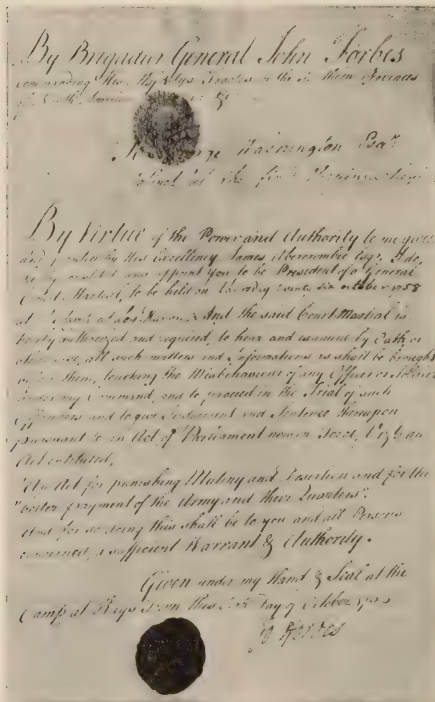 By Brigadier General John Forbes
commanding His Majestys Troops in the Southern Provinces
of North America
George Washington Esqr
Colonel of the first Virginia
By Virtue of the Power and Authority to me given
by His Excellency James Abercrombie Esqr. I do
and appoint you to be President of a General
Court Martial, to be held on
at And the said Court Martial is
hereby authorized and required, to hear and examine by Oath or
otherwise, all such matters and Informations as shall be brought
before them, touching the Misbehaviour of any Officer or Soldier
under my Command, and to proceed in the Trial of such
Offenders and to give Judgement and Sentence thereupon
pursuant to an Act of Parliament now in Force, an
Act entituled,
"An Act for punishing Mutiny and Desertion and for the
"better payment of the Army and their Quarters".
And for so doing this shall be to you and all Persons
concerned, a sufficient Warrant & Authority.
Given under my Hand & Seal at the
Camp at this Day of October
Jo Forbes